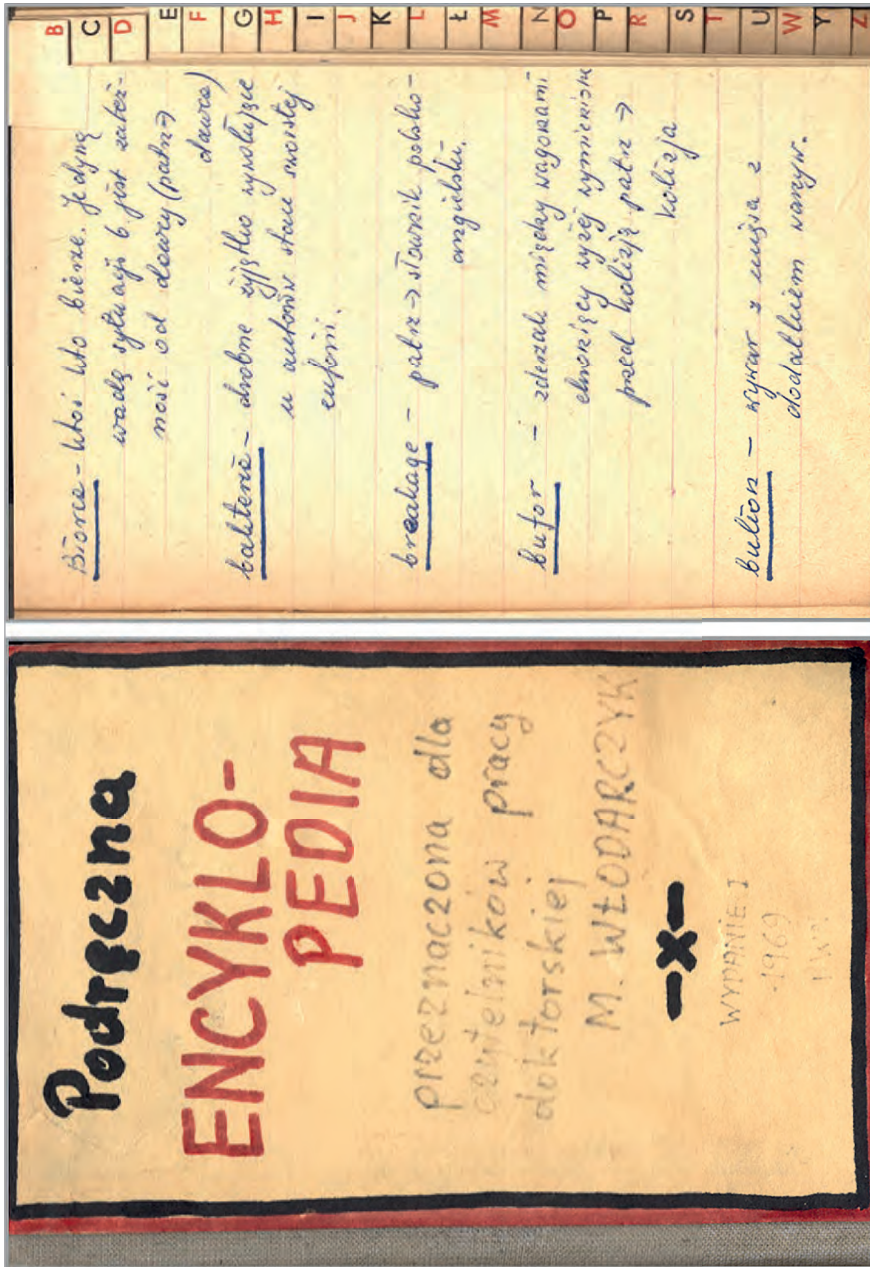 Podręczna
ENCYKLO-
PEDIA
przeznaczona dla
czytelników pracy
doktorskiej
M. WŁODARCZYK
-x-
WYDANIE I
1969
B
C
D
E
F
G
H
I
J
K
L
Ł
M
N
O
P
R
S
T
U
W
Y
Z
Biorca - ktoś kto bierze. Jedyną
wadą sytuacji b jest zależ-
ność od dawcy (patrz →
dawca)
bakteria - drobne żyjątko
u autorów stan swoistej
euforii.
breakage - patrz → słownik polsko-
angielski.
bufor - zderzak między wagonami
chroniący wyżej wymienione
przed kolizją patrz →
kolizja
bulion - wywar z mięsa z
dodatkiem warzyw.